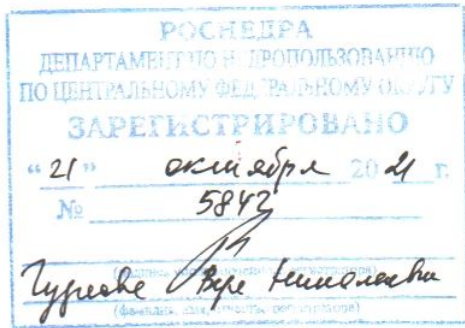 РОСНЕДРА
ДЕПАРТАМЕНТ ПО НЕДРОПОЛЬЗОВАНИЮ
ПО ЦЕНТРАЛЬНОМУ ФЕДЕРАЛЬНОМУ ОКРУГУ
ЗАРЕГИСТРИРОВАНО
“ 21 ” октября 2021 г.
№ 5842
(подпись
Вера Николаевна
(фамилия, имя, отчество регистратора)